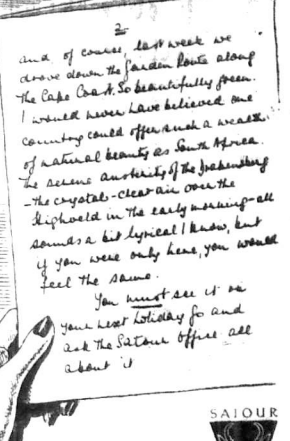 2
and, of course, last week we
drove down the Garden Route along
the Cape Coast. So beautifully green.
I would never have believed one
country could offer such a wealth
of natural beauty as South Africa.
The serene austerity of the Drakensberg
- the crystal-clear air over the
Highveld in the early morning - all
sounds a bit lyrical I know, but
if you were only here, you would
feel the same.
You must see it on
your next holiday. Go and
ask the Satour office all
about it
SATOUR